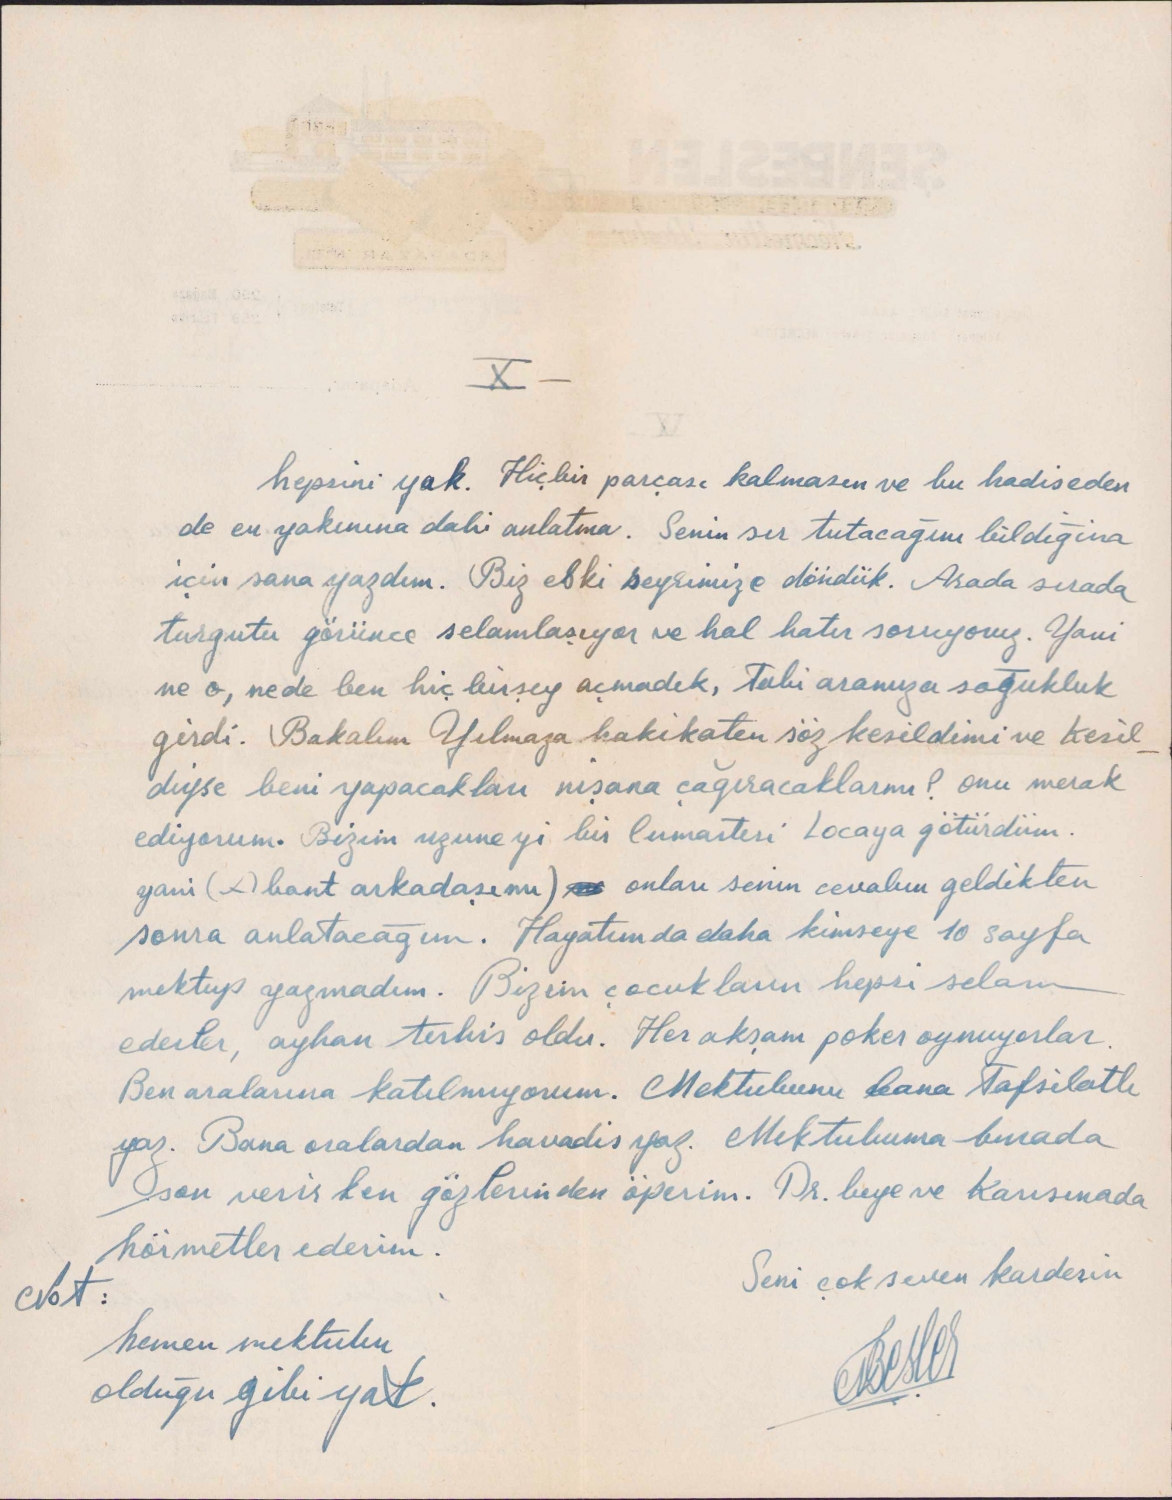 X —
hepsini yak. Hiçbir parçası kalmasın ve bu hadiseden
de en yakınına dahi anlatma. Senin sır tutacağını bildiğim
için sana yazdım. Biz eski seyrimize döndük. Arada sırada
turgutu görünce selamlaşıyor ve hal hatır soruyoruz. Yani
ne o, nede ben hiç birşey açmadık, Tabi aramıza soğukluk
girdi. Bakalım Yılmaza hakikaten söz kesildimi ve kesil-
diyse beni yapacakları nişana çağıracaklarmı? onu merak
ediyorum. Bizim uzuneyi bir Cumartesi Locaya götürdüm.
yani ( bant arkadaşımı) onları senin cevabın geldikten
sonra anlatacağım. Hayatımda daha kimseye 10 sayfa
mektup yazmadım. Bizim çocukların hepsi selam
ederler, ayhan terhis oldu. Her akşam poker oynuyorlar.
Ben aralarına katılmıyorum. Mektubunu bana Tafsilatlı
yaz. Bana oralardan havadis yaz. Mektubuma burada
son verirken gözlerinden öperim. Dr. beye ve Karısınada
hörmetler ederim.
Seni çok seven kardeşin
Not:
hemen mektubu
olduğu gibi yak.